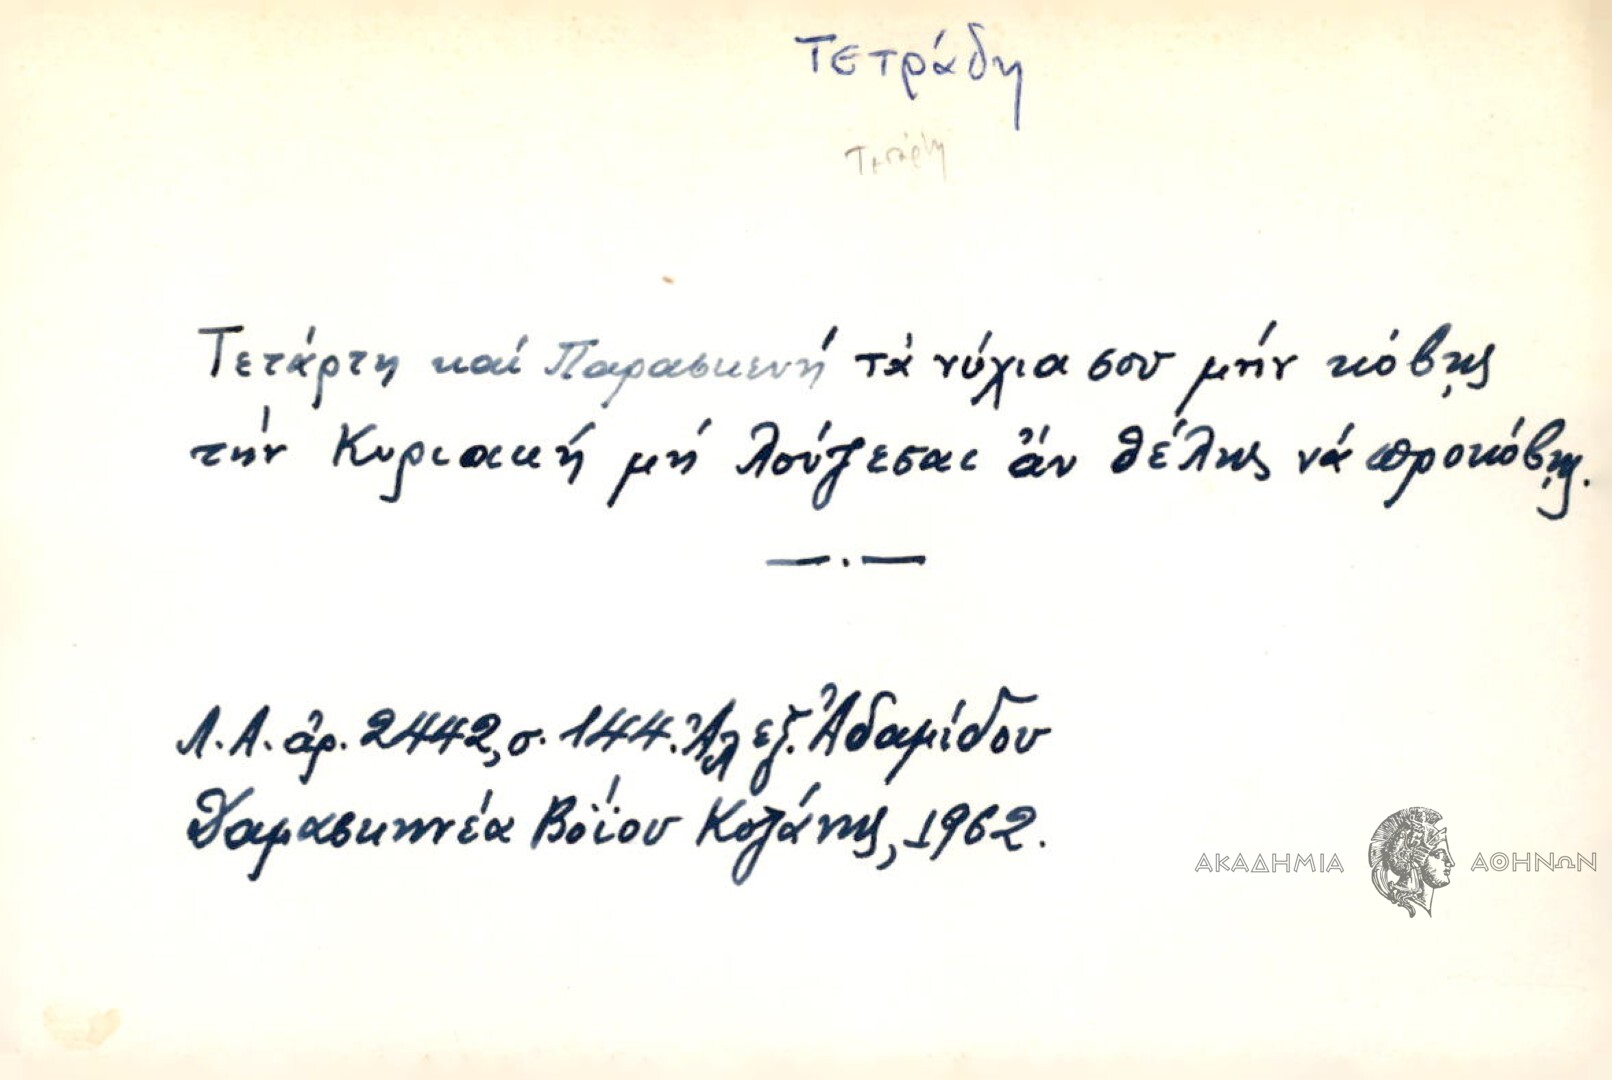 Τετράδη
Τετάρτη
Τετάρτη καί Παρασκευή τά νύχια σου μήν κόβῃς
τήν Κυριακή μή λούζεσαι ἄν θέλῃς νά προκόβῃς.
—.—
Λ.Α. ἀρ. 2442, σ. 144. Ἀλεξ. Ἀδαμίδου
Δαμασκηνέα Βοΐου Κοζάνης, 1962.
ΑΚΑΔΗΜΙΑ ΑΘΗΝΩΝ